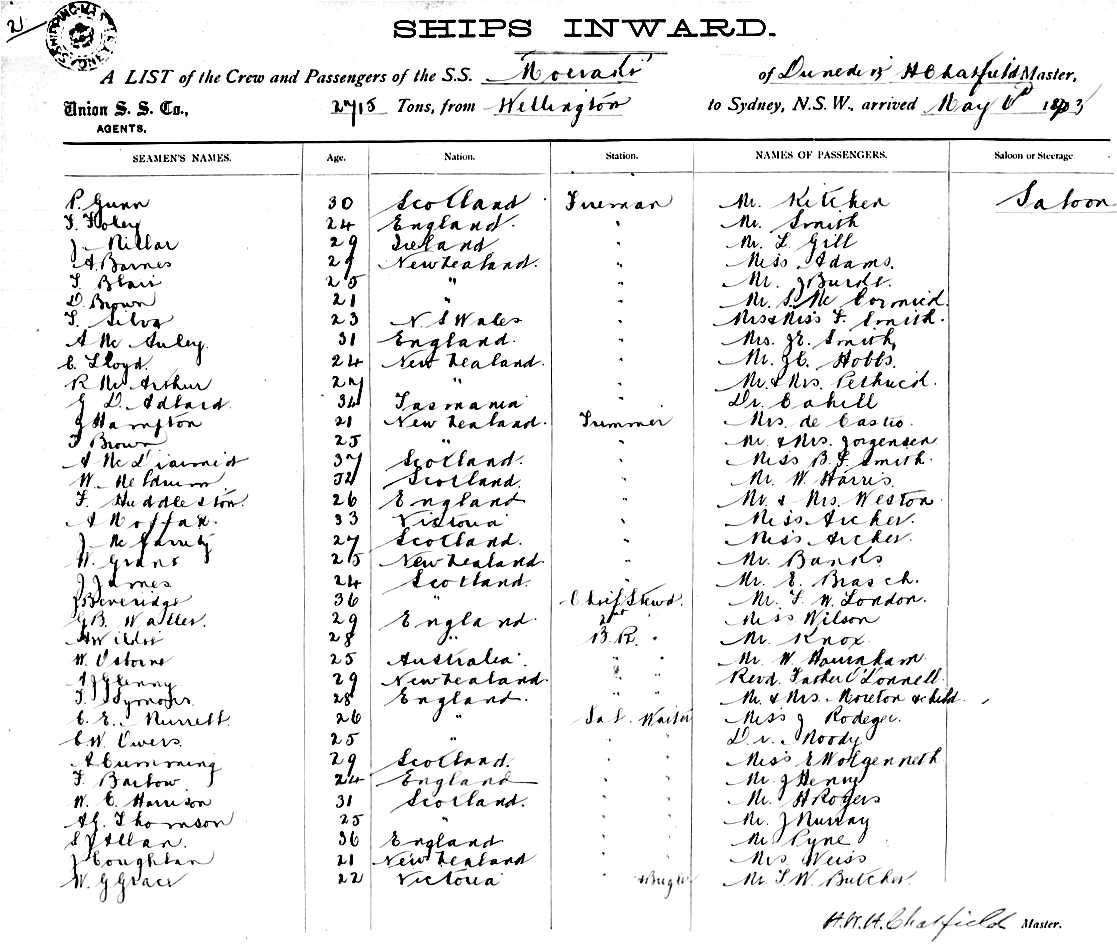 21
SHIPS INWARD.
A LIST of the Crew and Passengers of the S.S. Moeraki of Dunedin H Chatfield Master,
Union S. S. Co., 2715 Tons, from Wellington to Sydney, N.S.W., arrived May
AGENTS.
SEAMEN'S NAMES. Age. Nation. Station. NAMES OF PASSENGERS. Saloon or Steerage.
P. Gunn 30 Scotland Fireman Mr. Kitchen Saloon
T. Foley 24 England " Mr. Smith
J. Millar 29 Ireland " Mr. L. Gill
A. Barnes 29 New Zealand. " Miss Adams.
T. Blair 25 " " Mr. J Burds.
D. Brown 21 " Mr. S. Mc Cormick.
T. Silva 23 N. S Wales " Mrs & Miss F. Smith.
A Mc Auley. 31 England. " Mrs. J E. Smith
C. Lloyd. 24 New Zealand. " Mr. J C. Hobbs.
R. Mc Arthur 27 " " Mr. & Mrs.
G D. Adlard. 34 Tasmania " Dr. Cahill
J Hampton 21 New Zealand. Trimmer Mrs. de Castro.
T Brown 25 " " Mr. & Mrs. Jorgensen
A Mc Diarmid 37 Scotland. " Miss B. F. Smith.
W. Meldrum. 32 Scotland. " Mr. W. Harris.
F. Huddleston. 26 England " Mr. & Mrs. Weston.
A Moffax. 33 Victoria " Miss Archer.
J Mc Garrity 27 Scotland. " Miss Archer.
W. Grant 25 New Zealand. " Mr. Banks
J James 24 Scotland. " Mr. E. Brasch.
J Beveridge 36 " Chief Stewd. Mr. F. W. London.
G B. Waller. 29 England 2nd " Miss Wilson
H Wilds 28 " B. R. " Mr. Knox.
W. Osborne 25 Australia. " " Mr. W
A J Glenny 29 New Zealand. " " Revd. Father O'Donnell.
T. J Symons. 28 England. " " Mr. & Mrs. Moreton & child.
C. E. Murrell. 26 " Sal. Waiter Miss J Rodeger.
C. W. Owers. 25 " " " Dr. Moody
A Cumming 29 Scotland. " " Miss E Wolgenneth
F. Barlow. 24 England " " Mr. J Henry
W. C. Harrison 31 Scotland. " " Mr. H Rogers
A G. Thomson 25 " " " Mr. J Murray
S J Allan. 36 England " " Mr Pyne
J Coughlan 21 New Zealand " " Mrs Weiss
W. G Grace 22 Victoria " & Bugler Mr. T. W. Butcher.
H. W. H. Chatfield Master.